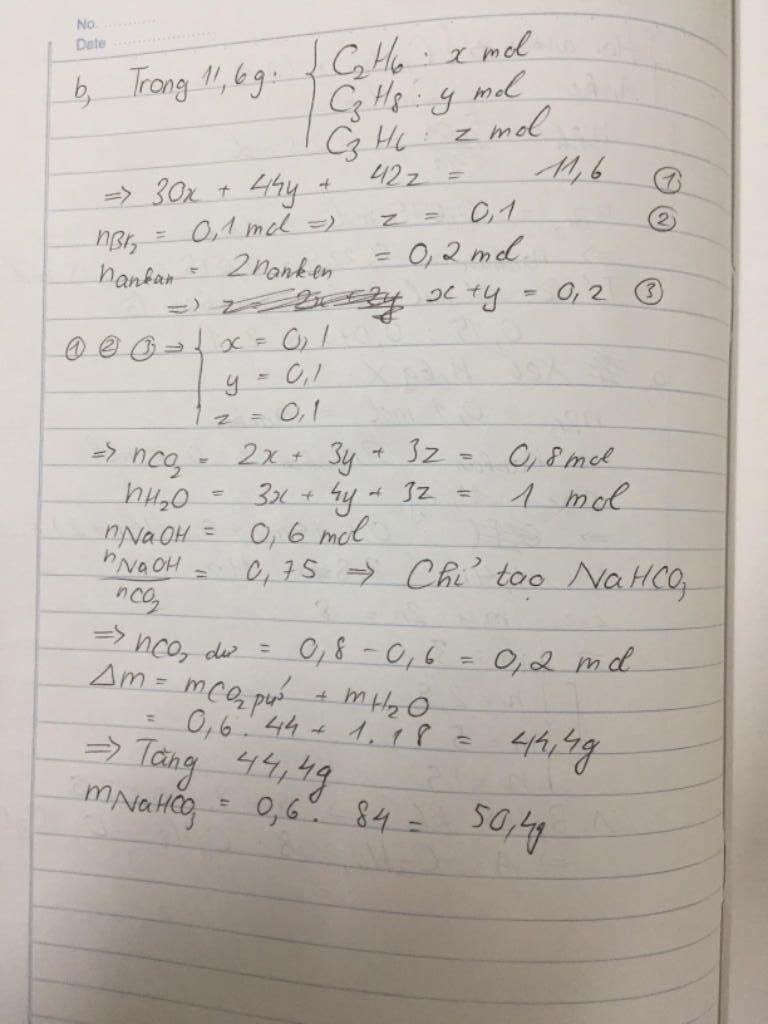 No.
Date
b, Trong 11,6g: C₂H₆ : x mol
C₃H₈ : y mol
C₃H₆ : z mol
=> 30x + 44y + 42z = 11,6 ①
nBr₂ = 0,1 mol => z = 0,1 ②
nankan = 2nanken = 0,2 mol
=> x + y = 0,2 ③
① ② ③ => x = 0,1
y = 0,1
z = 0,1
=> nCO₂ = 2x + 3y + 3z = 0,8 mol
nH₂O = 3x + 4y + 3z = 1 mol
nNaOH = 0,6 mol
nNaOH/nCO₂ = 0,75 => Chỉ tạo NaHCO₃
=> nCO₂ dư = 0,8 - 0,6 = 0,2 mol
Δm = mCO₂ pứ + mH₂O
= 0,6 . 44 + 1 . 18 = 44,4g
=> Tăng 44,4g
mNaHCO₃ = 0,6 . 84 = 50,4g